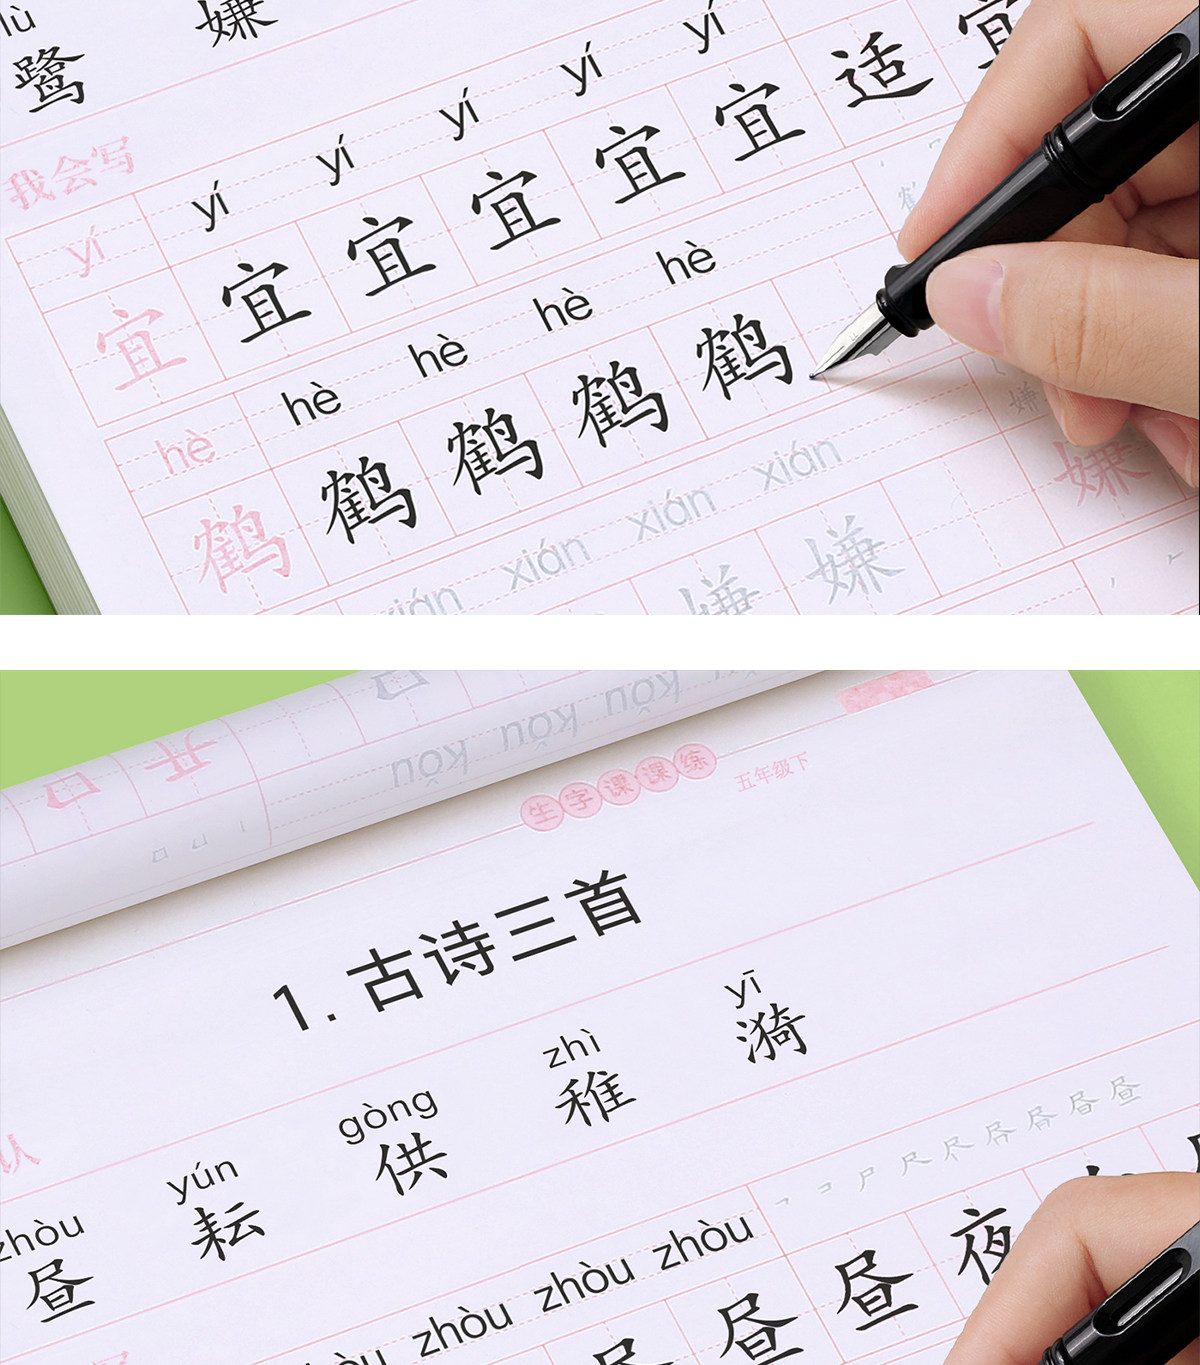 lù
鹭 嫌
我会写
yí yí yí yí yí yí
宜 宜 宜 宜 宜 宜 适 宜
hè hè hè hè hè
鹤 鹤 鹤 鹤 鹤
xián xián xián
嫌 嫌 嫌 嫌
口 开
kǒu kǒu kǒu kǒu
生字课课练 五年级下
1. 古诗三首
认
zhòu yún gòng zhì yī
昼 耘 供 稚 漪
写
zhòu zhòu zhòu
昼 昼 夜